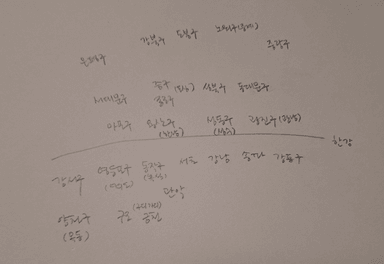 강북구 도봉구 노원구
중랑구
은평구
중구 성북구 동대문구
서대문구 종로구
마포구 용산구 성동구 광진구
한강
강서구 영등포구 동작구 서초 강남 송파 강동구
(여의도)
관악
양천구 구로 금천
(목동)